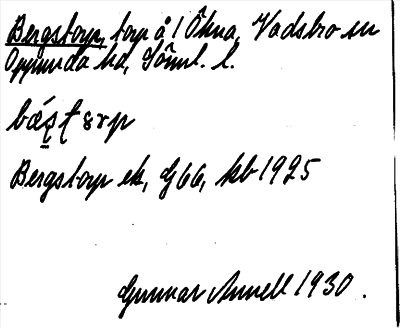 Bergstorp, torp å 1 Ökna, Vadsbro sn
Oppunda hd, Söml. l.
Bergstorp ek, G66, kb 1925
Gunnar Annell 1930.